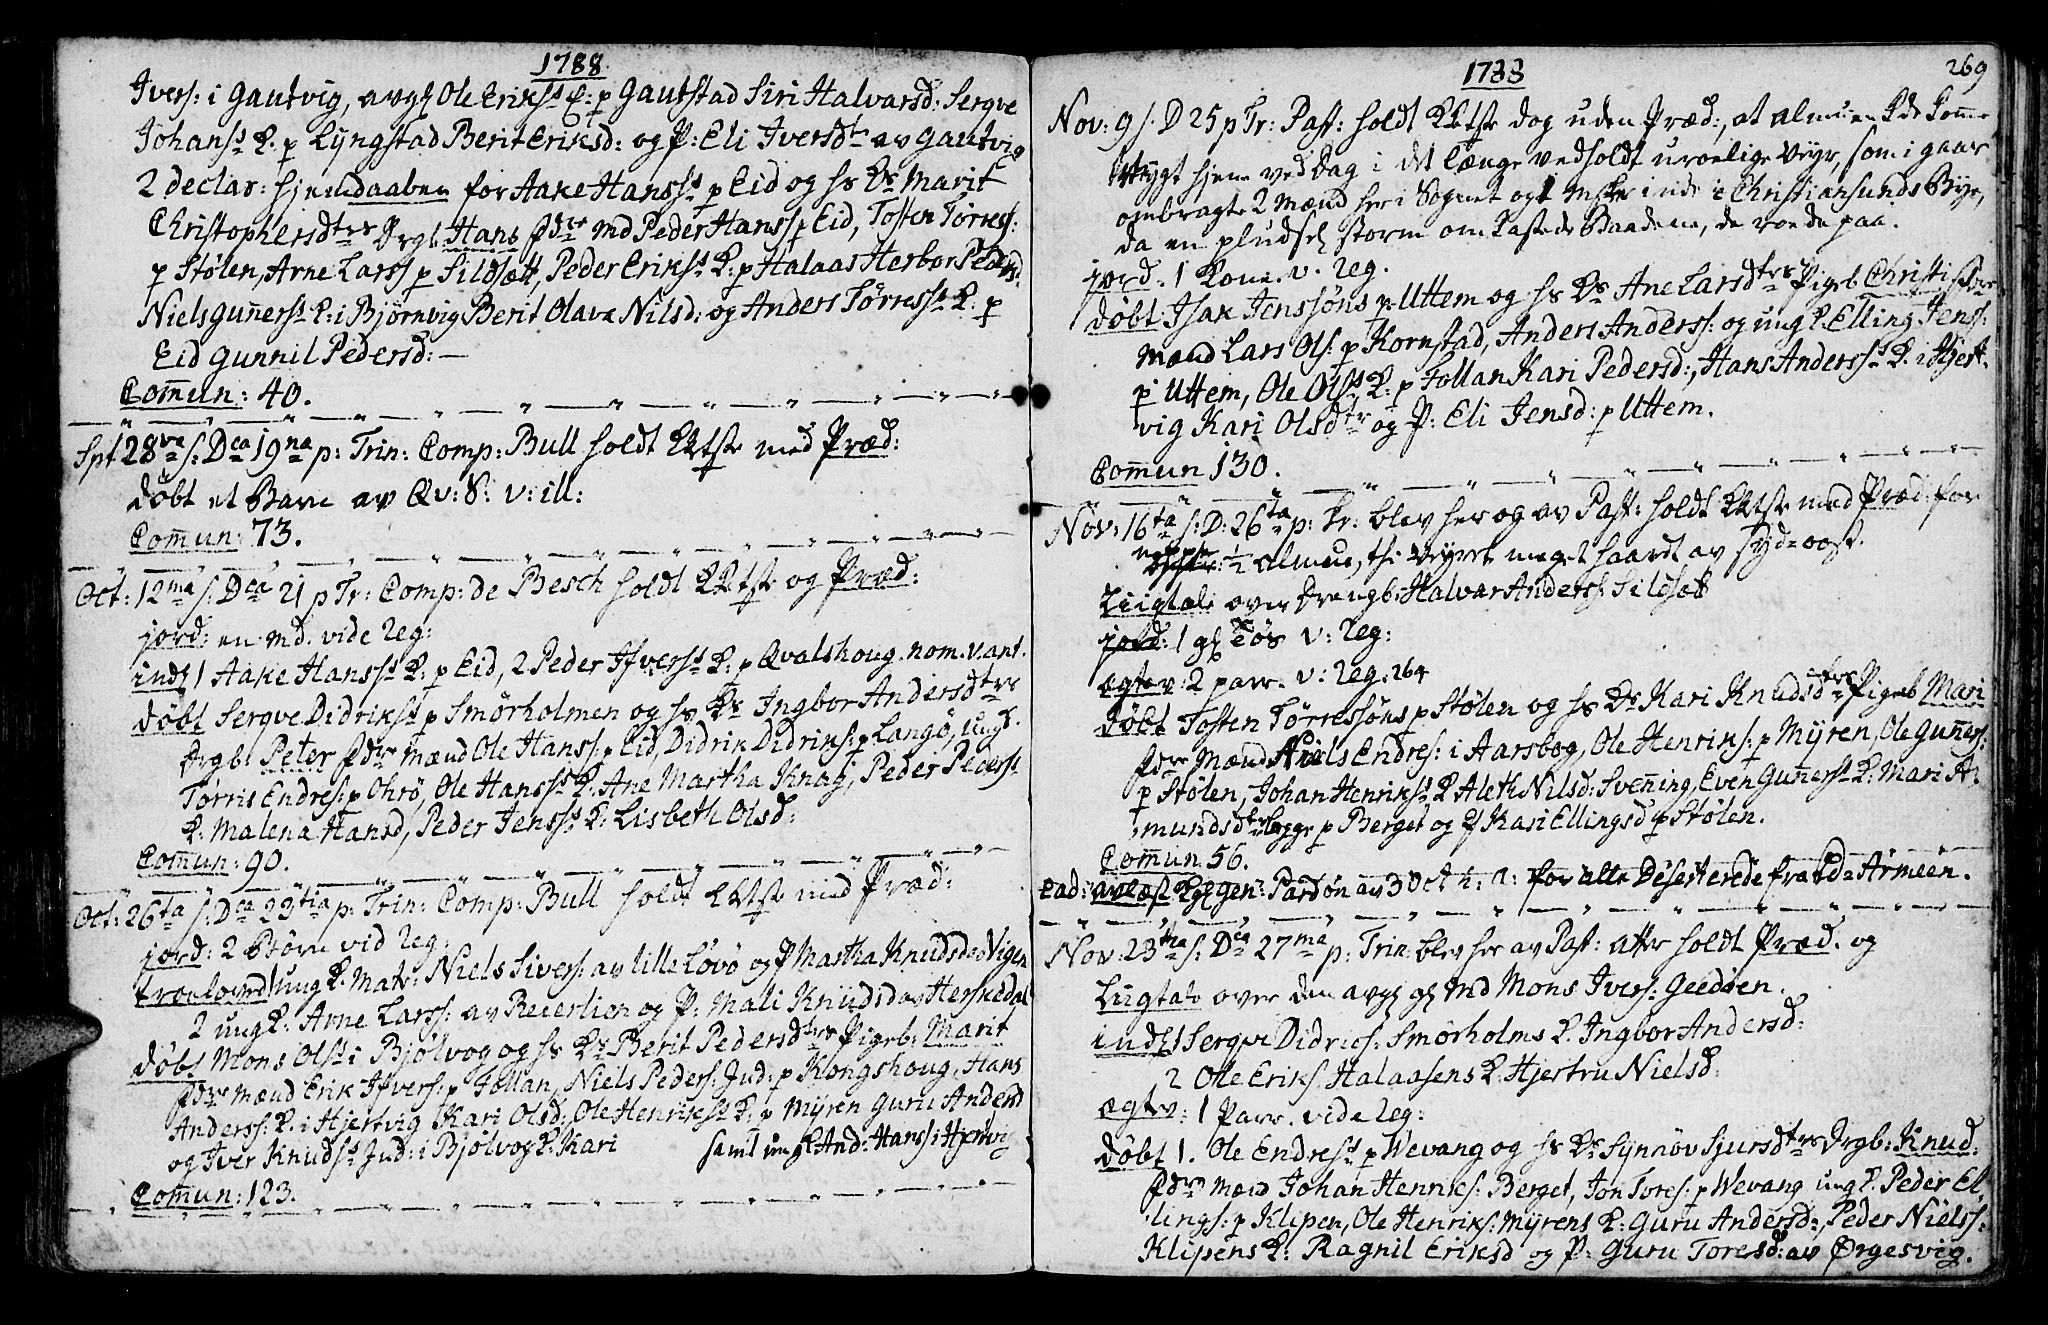 1788
Ivers: i Gautvig, avgl Ole Erikss K: p Gautstad Siri Halvarsd: Serqve
Johanss K: p Lÿngstad Berit Eriksd: og P: Eli Iversdtr av Gautvig
2 declar: hjemdaaben for Aake Hanss p Eid og hs Ks Marit
Christophersdtrs Drgb: Hans fdre Md Peder Hanss p Eid, Tosten Tørress:
p Stølen, Arne Larss p Sildsætt, Peder Erikss K: p Halaas Herbor Pedersd.
Niels Guñerss K: i Bjørnvig Berit Olava Nilsd: og Anders Tørress K: p
Eid Gunnil Pedersd: —
Com̃un: 40.
Spt 28va s: Dca 19na p: Trin: Comp: Bull holdt KKtste med Præd:
døbt et Barn av Qv: S: v: ill:
Com̃un: 73.
Oct: 12ma s: Dca 21 p Tr: Comp: de Besch holdt KKtste og Præd:
jord: en md. vide Reg:
indl 1 Aake Hanss K: p Eid, 2 Peder Ifverss K: p Qvalshoug. nom. v. ant.
døbt Serqve Didrikss p Smørholmen og hs Ks Ingbor Andersdtrs
Drgb: Peter fdre Mænd Ole Hanss: p Eid, Didrik Didriks: p Langø, ungd.
Tørris Endres: p Ohrø, Ole Hanss K: Ane Martha Knag, Peder Pederss
K: Malena Hansd, Peder Jenss K: Lisbeth Olsd:
Com̃un: 90.
Oct: 26ta s: Dca 23tia p: Trin: Comp: Bull holdt KKtste med Præd:
jord: 2 Børn vid Reg:
trolovrd 1 ung K: Matr: Niels Sivers: av lille Løvø og P Martha Knudsd av Vigen
2 ung K: Arne Larss: av Reierlien og P: Mali Knudsd av Herskedal
døbt Mons Olss i Bjølvog og hs Ks Berit Pedersdtrs Pigeb: Marit
fdre Mænd Erik Ifvers: p Follan, Niels Peders: Jud: p Kongshoug, Hans
Anderss: K: i Hjertvig Kari Olsd: Ole Henrikss K: p Mÿren Guru Andersd
og Iver Knudss Jud: i Bjølvog K: Kari samt ungk And: Hanss: i Hjertvig
Com̃un: 123.
1788
269
Nov: 9 s: D 25 p Tr: Past: holdt KKtste dog uden Præd:, at almuen Kde komme
hjem ved Dag i det længe vedholdt uroelige Veyr, som i gaar
ombragte 2 Mænd her i Sognet og 1 Mske inde i Christiansunds Bye,
da en pludsel storm omkastede Baadene, de roede paa.
jord. 1 Kone. v. Reg.
døbt Isak Jenssøns p Uttem og hs Ks Ane Larsdtrs Pigeb Christi fdre
Mænd Lars Ols: p Kornstad, Anders Anderss: og ung K. Elling Jens:
p Uttem, Ole Olss K: p Follan Kari Pedersd:, Hans Anderss K. i Hjert-
vig Kari Olsdtr og P: Eli Jensd: p Uttem.
Com̃un 130.
Nov: 16ta s: D: 26ta p: Tr: blev her og av Past: holdt KKtste med Præd: for
neppe ½ almue, thi Veyret meget haardt av Syd-oost.
Liigtale over Drengb: Halvar Anders: Sildsæt
jord: 1 gl Tøs v: Reg:
ægtev: 2 parr. v: Reg: 264
døbt Tosten Tørressøns p Stølen og hs Ks Kari Knudsdtrs Pigeb Mari
fdre Mænd Niels Endres: i Aarsbog, Ole Henriks: p Mÿren, Ole Guñers:
p Stølen, Johan Henrikss K Aleth Nilsd: Sveñing, Even Guñerss K: Mari A-
mundsdtr p Berget og P Kari Ellingsd p Stølen.
Com̃un 56.
Ead: avlæst Kgl Gen: Pardon av 3 Oct h: a: for alle Deserterede fra Ld-Armeen.
Nov: 23tia s: Dca 27ma p: Trin: blev her av Past: atter holdt Præd. og
Liigtale over den avgl gl Md Mons Ivers: Geedøen.
indl 1 Serqve Didrics: Smørholms K. Ingbor Andersd:
2 Ole Eriks: Halaasens K: Hjertru Nielsd:
ægtev: 1 Parr. vide Reg:
døbt 1. Ole Endress p Wevang og hs Ks Sÿnnøv Sjursdtrs Drgb: Knud:
fdre Mænd Johan Henriks: Berget, Jon Tores: p Wevang ung K. Peder El-
lings: p Klipen, Ole Henriks: Mÿrens K: Guru Andersd:, Peder Nielss:
Klipens K: Ragnil Eriksd og P: Guru Toresd: av Ørgesvig.